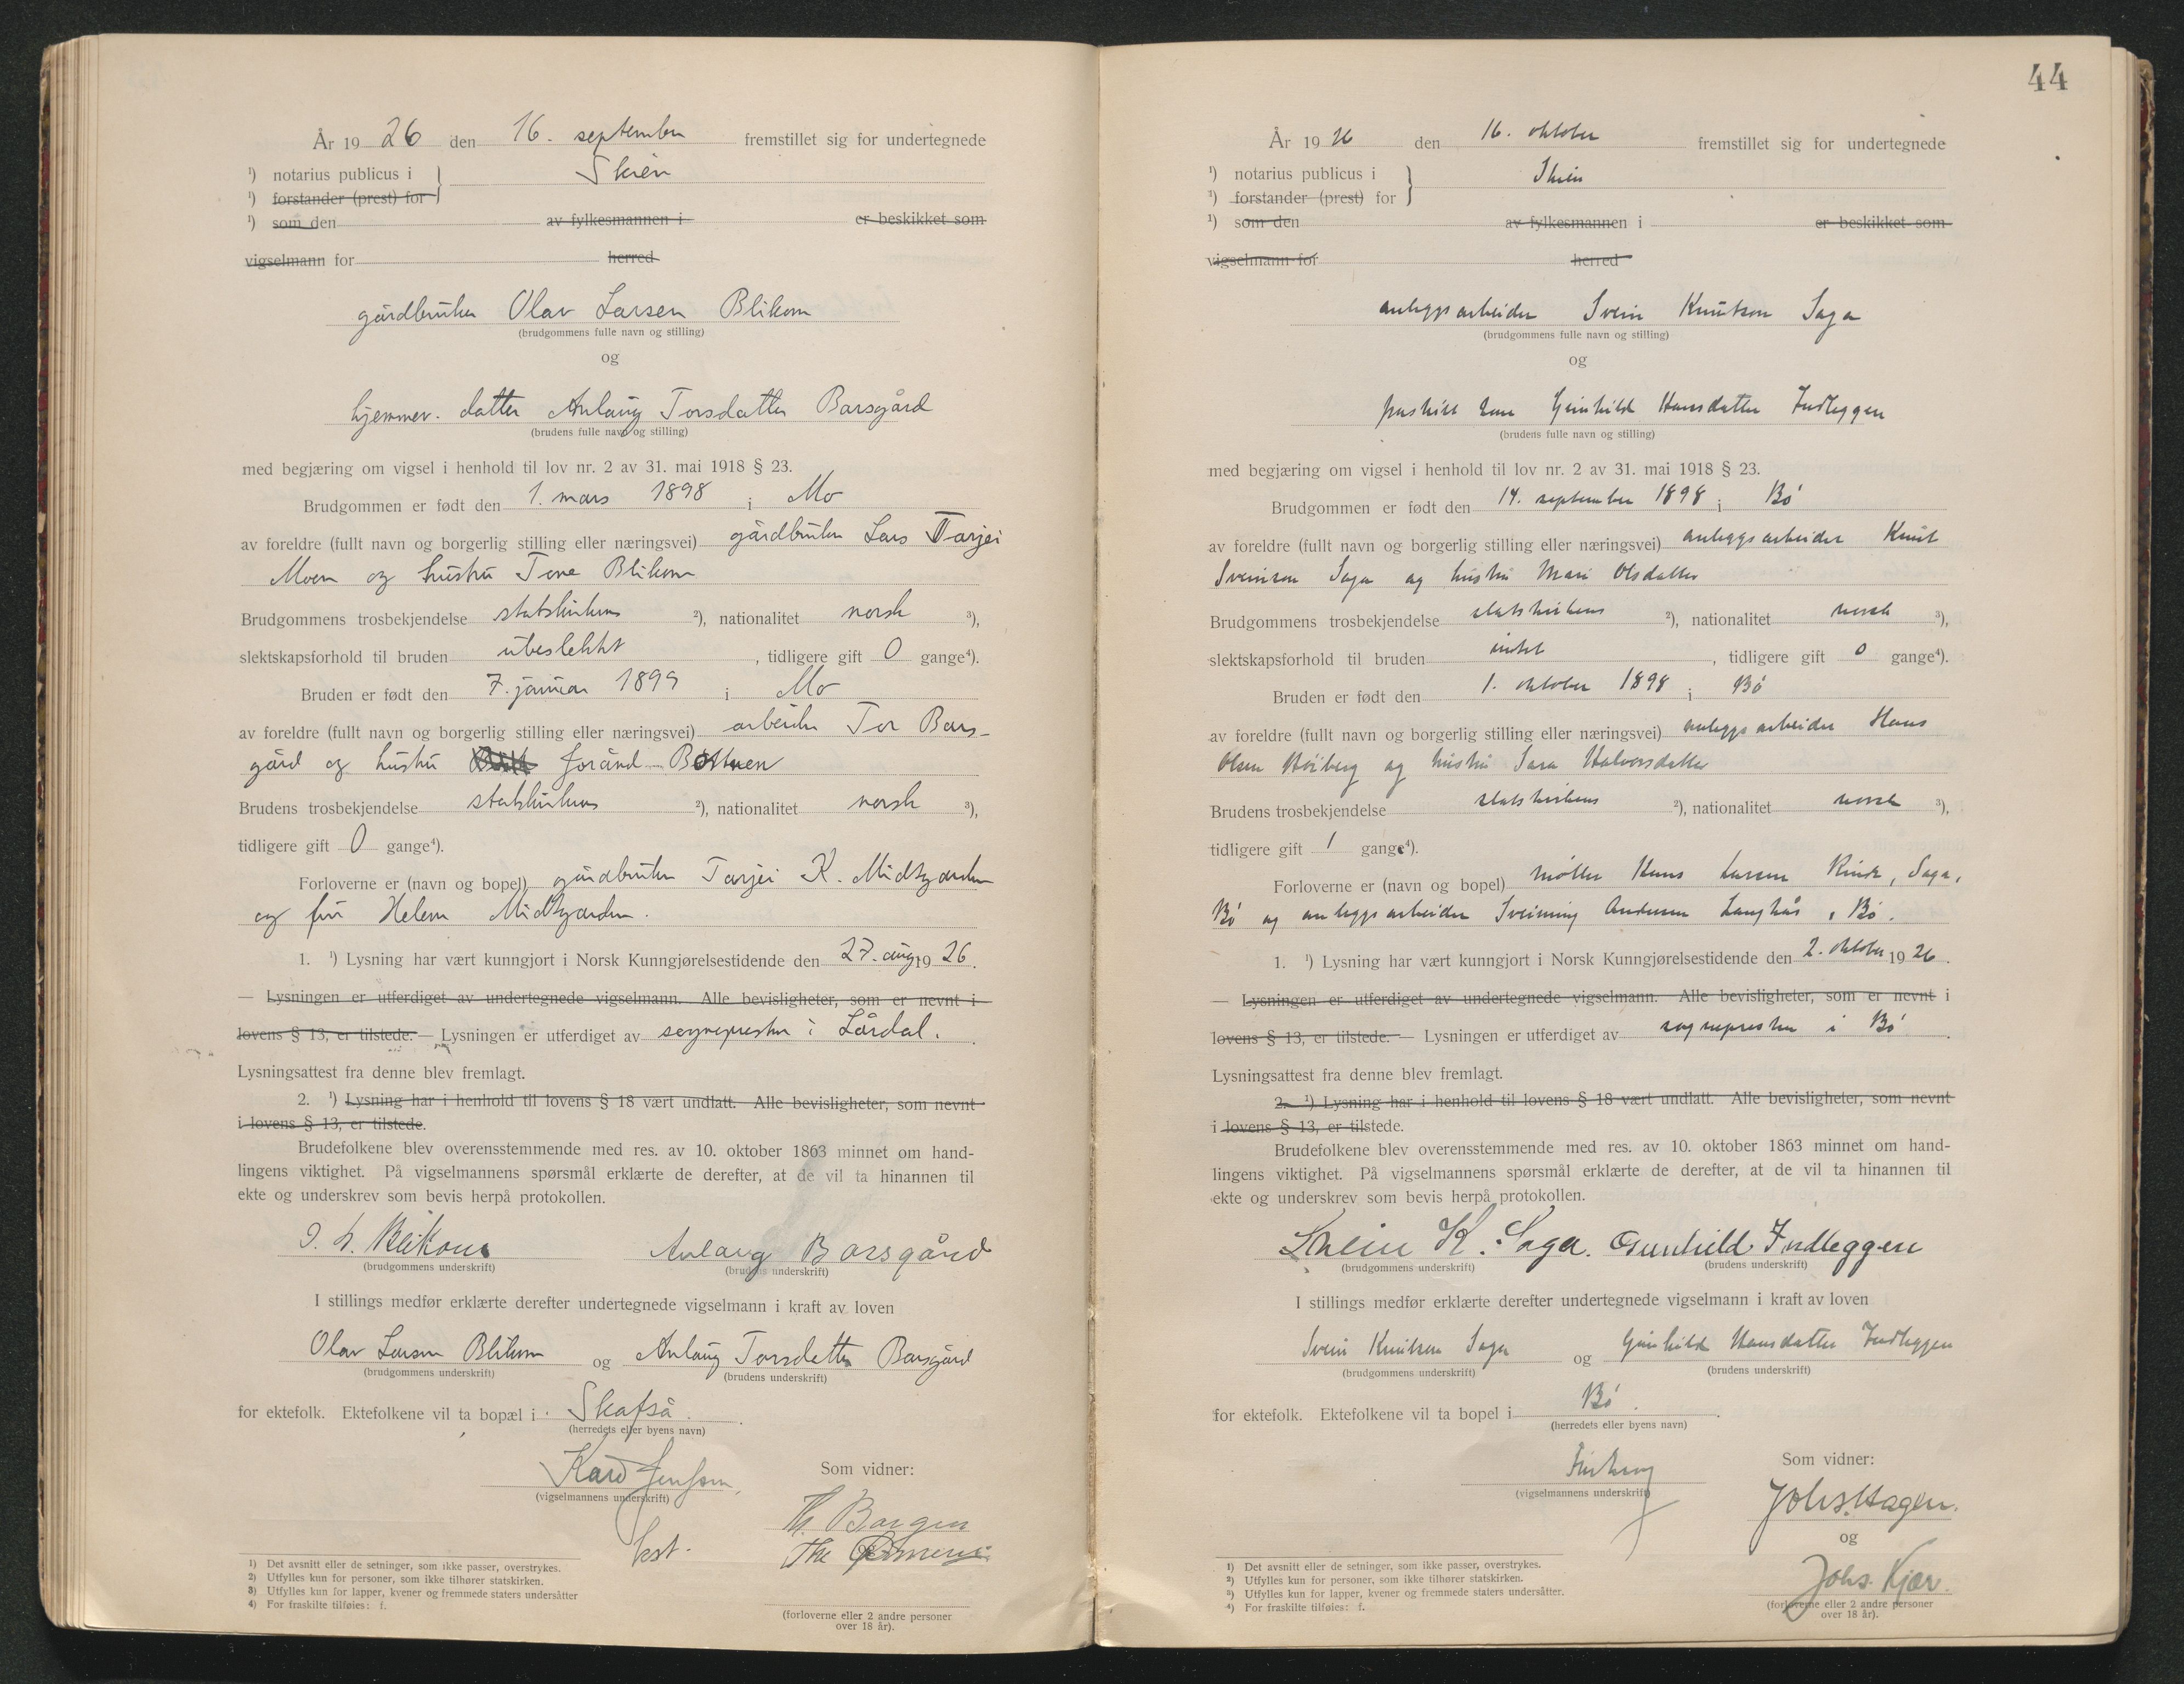 År 19 26 den 16. september fremstillet sig for undertegnede
¹) notarius publicus i Skien
¹) forstander (prest) for
¹) som den av fylkesmannen i er beskikket som
vigselmann for herred
gårdbruker Olav Larsen Blikom
(brudgommens fulle navn og stilling)
og
hjemmev. datter Anlaug Torsdatter Barsgård
(brudens fulle navn og stilling)
med begjæring om vigsel i henhold til lov nr. 2 av 31. mai 1918 § 23.
Brudgommen er født den 1. mars 1898 i Mo
av foreldre (fullt navn og borgerlig stilling eller næringsvei) gårdbruker Lars Tarjei
Moen og hustru Tone Blikom
Brudgommens trosbekjendelse statskirkens ²), nationalitet norsk ³),
slektskapsforhold til bruden ubeslektet, tidligere gift 0 gange⁴).
Bruden er født den 7. januar 1899 i Mo
av foreldre (fullt navn og borgerlig stilling eller næringsvei) arbeider Tor Bars-
gård og hustru Jorånd Bøttuen
Brudens trosbekjendelse statskirkens ²), nationalitet norsk ³),
tidligere gift 0 gange⁴).
Forloverne er (navn og bopel) gårdbruker Tarjei K. Midtgarden
og fru Helene Midtgarden.
1. ¹) Lysning har vært kunngjort i Norsk Kunngjørelsestidende den 27. aug 19 26.
— Lysningen er utferdiget av undertegnede vigselmann. Alle bevisligheter, som er nevnt i
lovens § 13, er tilstede. — Lysningen er utferdiget av sognepresten i Lårdal.
Lysningsattest fra denne blev fremlagt.
2. ¹) Lysning har i henhold til lovens § 18 vært undlatt. Alle bevisligheter, som nevnt
i lovens § 13, er tilstede.
Brudefolkene blev overensstemmende med res. av 10. oktober 1863 minnet om hand-
lingens viktighet. På vigselmannens spørsmål erklærte de derefter, at de vil ta hinannen til
ekte og underskrev som bevis herpå protokollen.
O. L. Blikom Anlaug Barsgård
(brudgommens underskrift) (brudens underskrift)
I stillings medfør erklærte derefter undertegnede vigselmann i kraft av loven
Olav Larsen Blikom og Anlaug Torsdatter Barsgård
(brudgommens underskrift) (brudens underskrift)
for ektefolk. Ektefolkene vil ta bopæl i Skafså.
(herredets eller byens navn)
Som vidner:
(vigselmannens underskrift)
kst.
Th. Borgen
(forloverne eller 2 andre personer
over 18 år).
1) Det avsnitt eller de setninger, som ikke passer, overstrykes.
2) Utfylles kun for personer, som ikke tilhører statskirken.
3) Utfylles kun for lapper, kvener og fremmede staters undersåtter
4) For fraskilte tilføies: f.
44
År 19 26 den 16. oktober fremstillet sig for undertegnede
¹) notarius publicus i Skien
¹) forstander (prest) for
¹) som den av fylkesmannen i er beskikket som
vigselmann for herred
anleggsarbeider Svein Knutson Saga
(brudgommens fulle navn og stilling)
og
fraskilt frue Gunhild Hansdatter Indleggen
(brudens fulle navn og stilling)
med begjæring om vigsel i henhold til lov nr. 2 av 31. mai 1918 § 23.
Brudgommen er født den 14. september 1898 i Bø
av foreldre (fullt navn og borgerlig stilling eller næringsvei) anleggsarbeider Knut
Sveinson Saga og hustru Mari Olsdatter
Brudgommens trosbekjendelse statskirkens ²), nationalitet norsk ³),
slektskapsforhold til bruden intet, tidligere gift 0 gange⁴).
Bruden er født den 1. oktober 1898 i Bø
av foreldre (fullt navn og borgerlig stilling eller næringsvei) anleggsarbeider Hans
Olsen Høiberg og hustru Sara Halvorsdatter
Brudens trosbekjendelse statskirkens ²), nationalitet norsk ³),
tidligere gift 1 gange⁴).
Forloverne er (navn og bopel) møller Hans Larsen Rinde, Saga,
Bø og anleggsarbeider Sveinung Andersen Langkås, Bø.
1. ¹) Lysning har vært kunngjort i Norsk Kunngjørelsestidende den 2. oktober 19 26.
— Lysningen er utferdiget av undertegnede vigselmann. Alle bevisligheter, som er nevnt i
lovens § 13, er tilstede. — Lysningen er utferdiget av sognepresten i Bø.
Lysningsattest fra denne blev fremlagt.
2. ¹) Lysning har i henhold til lovens § 18 vært undlatt. Alle bevisligheter, som nevnt
i lovens § 13, er tilstede.
Brudefolkene blev overensstemmende med res. av 10. oktober 1863 minnet om hand-
lingens viktighet. På vigselmannens spørsmål erklærte de derefter, at de vil ta hinannen til
ekte og underskrev som bevis herpå protokollen.
Svein K. Saga. Gunhild Indleggen
(brudgommens underskrift) (brudens underskrift)
I stillings medfør erklærte derefter undertegnede vigselmann i kraft av loven
Svein Knutson Saga og Gunhild Hansdatter Indleggen
(brudgommens underskrift) (brudens underskrift)
for ektefolk. Ektefolkene vil ta bopel i Bø.
(herredets eller byens navn)
Som vidner:
(vigselmannens underskrift)
Johs. Hagen.
og
Johs. Kjær.
(forloverne eller 2 andre personer
over 18 år).
1) Det avsnitt eller de setninger, som ikke passer, overstrykes.
2) Utfylles kun for personer, som ikke tilhører statskirken.
3) Utfylles kun for lapper, kvener og fremmede staters undersåtter.
4) For fraskilte tilføies: f.